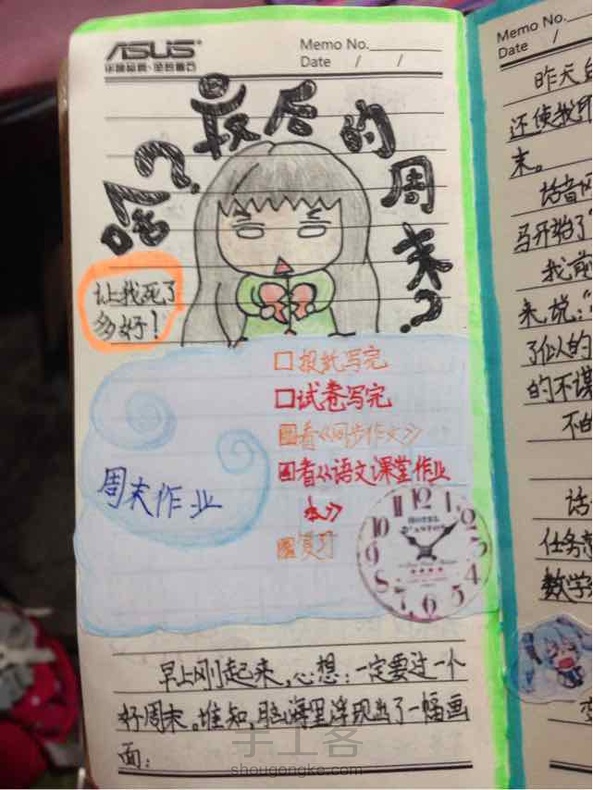 ASUS
华硕品质·坚若磐石
Memo No.
Date / /
啥?最后的周末?
让我死了
多好!
口报纸写完
口试卷写完
看《同步作文》
看《语文课堂作业
本》
复习
周末作业
HOTEL
12 1 2 3 4 5 6 7 8 9 10 11
早上刚起来,心想:一定要过一个
好周末。谁知,脑海里浮现出了一幅画
面:
手工客
shougongke.com
Memo No.
Date /
昨天
还使我
末。
话音
马开始了
我前
来,说:“
了似人的
的不谋
不
话
任务
数学
变